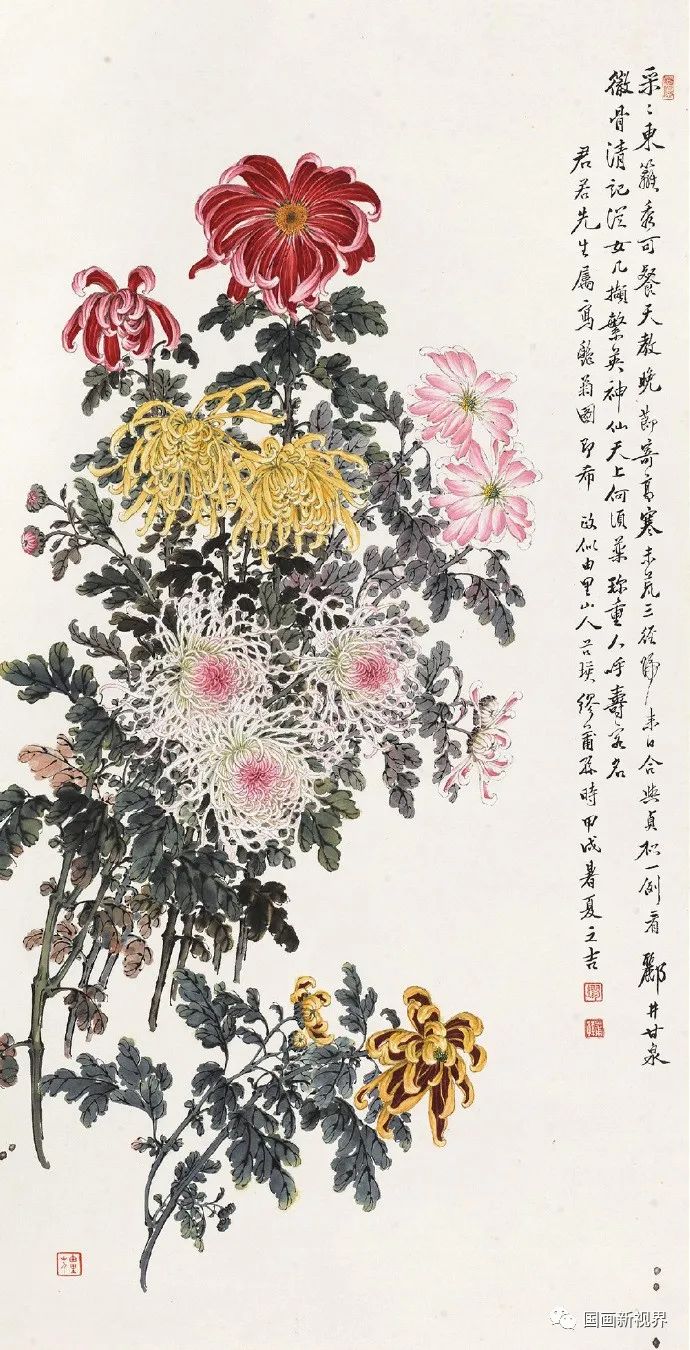 采〻東籬秀可餐天教晚節寄高寒未荒三徑歸來日合與貞松一例看 酈井甘泉
徹骨清記從女几擷繁英神仙天上何須藥珍重人呼壽客名
君若先生屬寫 菊圖即希 政似由里山人 繆莆孫時甲戌暑夏之吉
由里山人
国画新视界